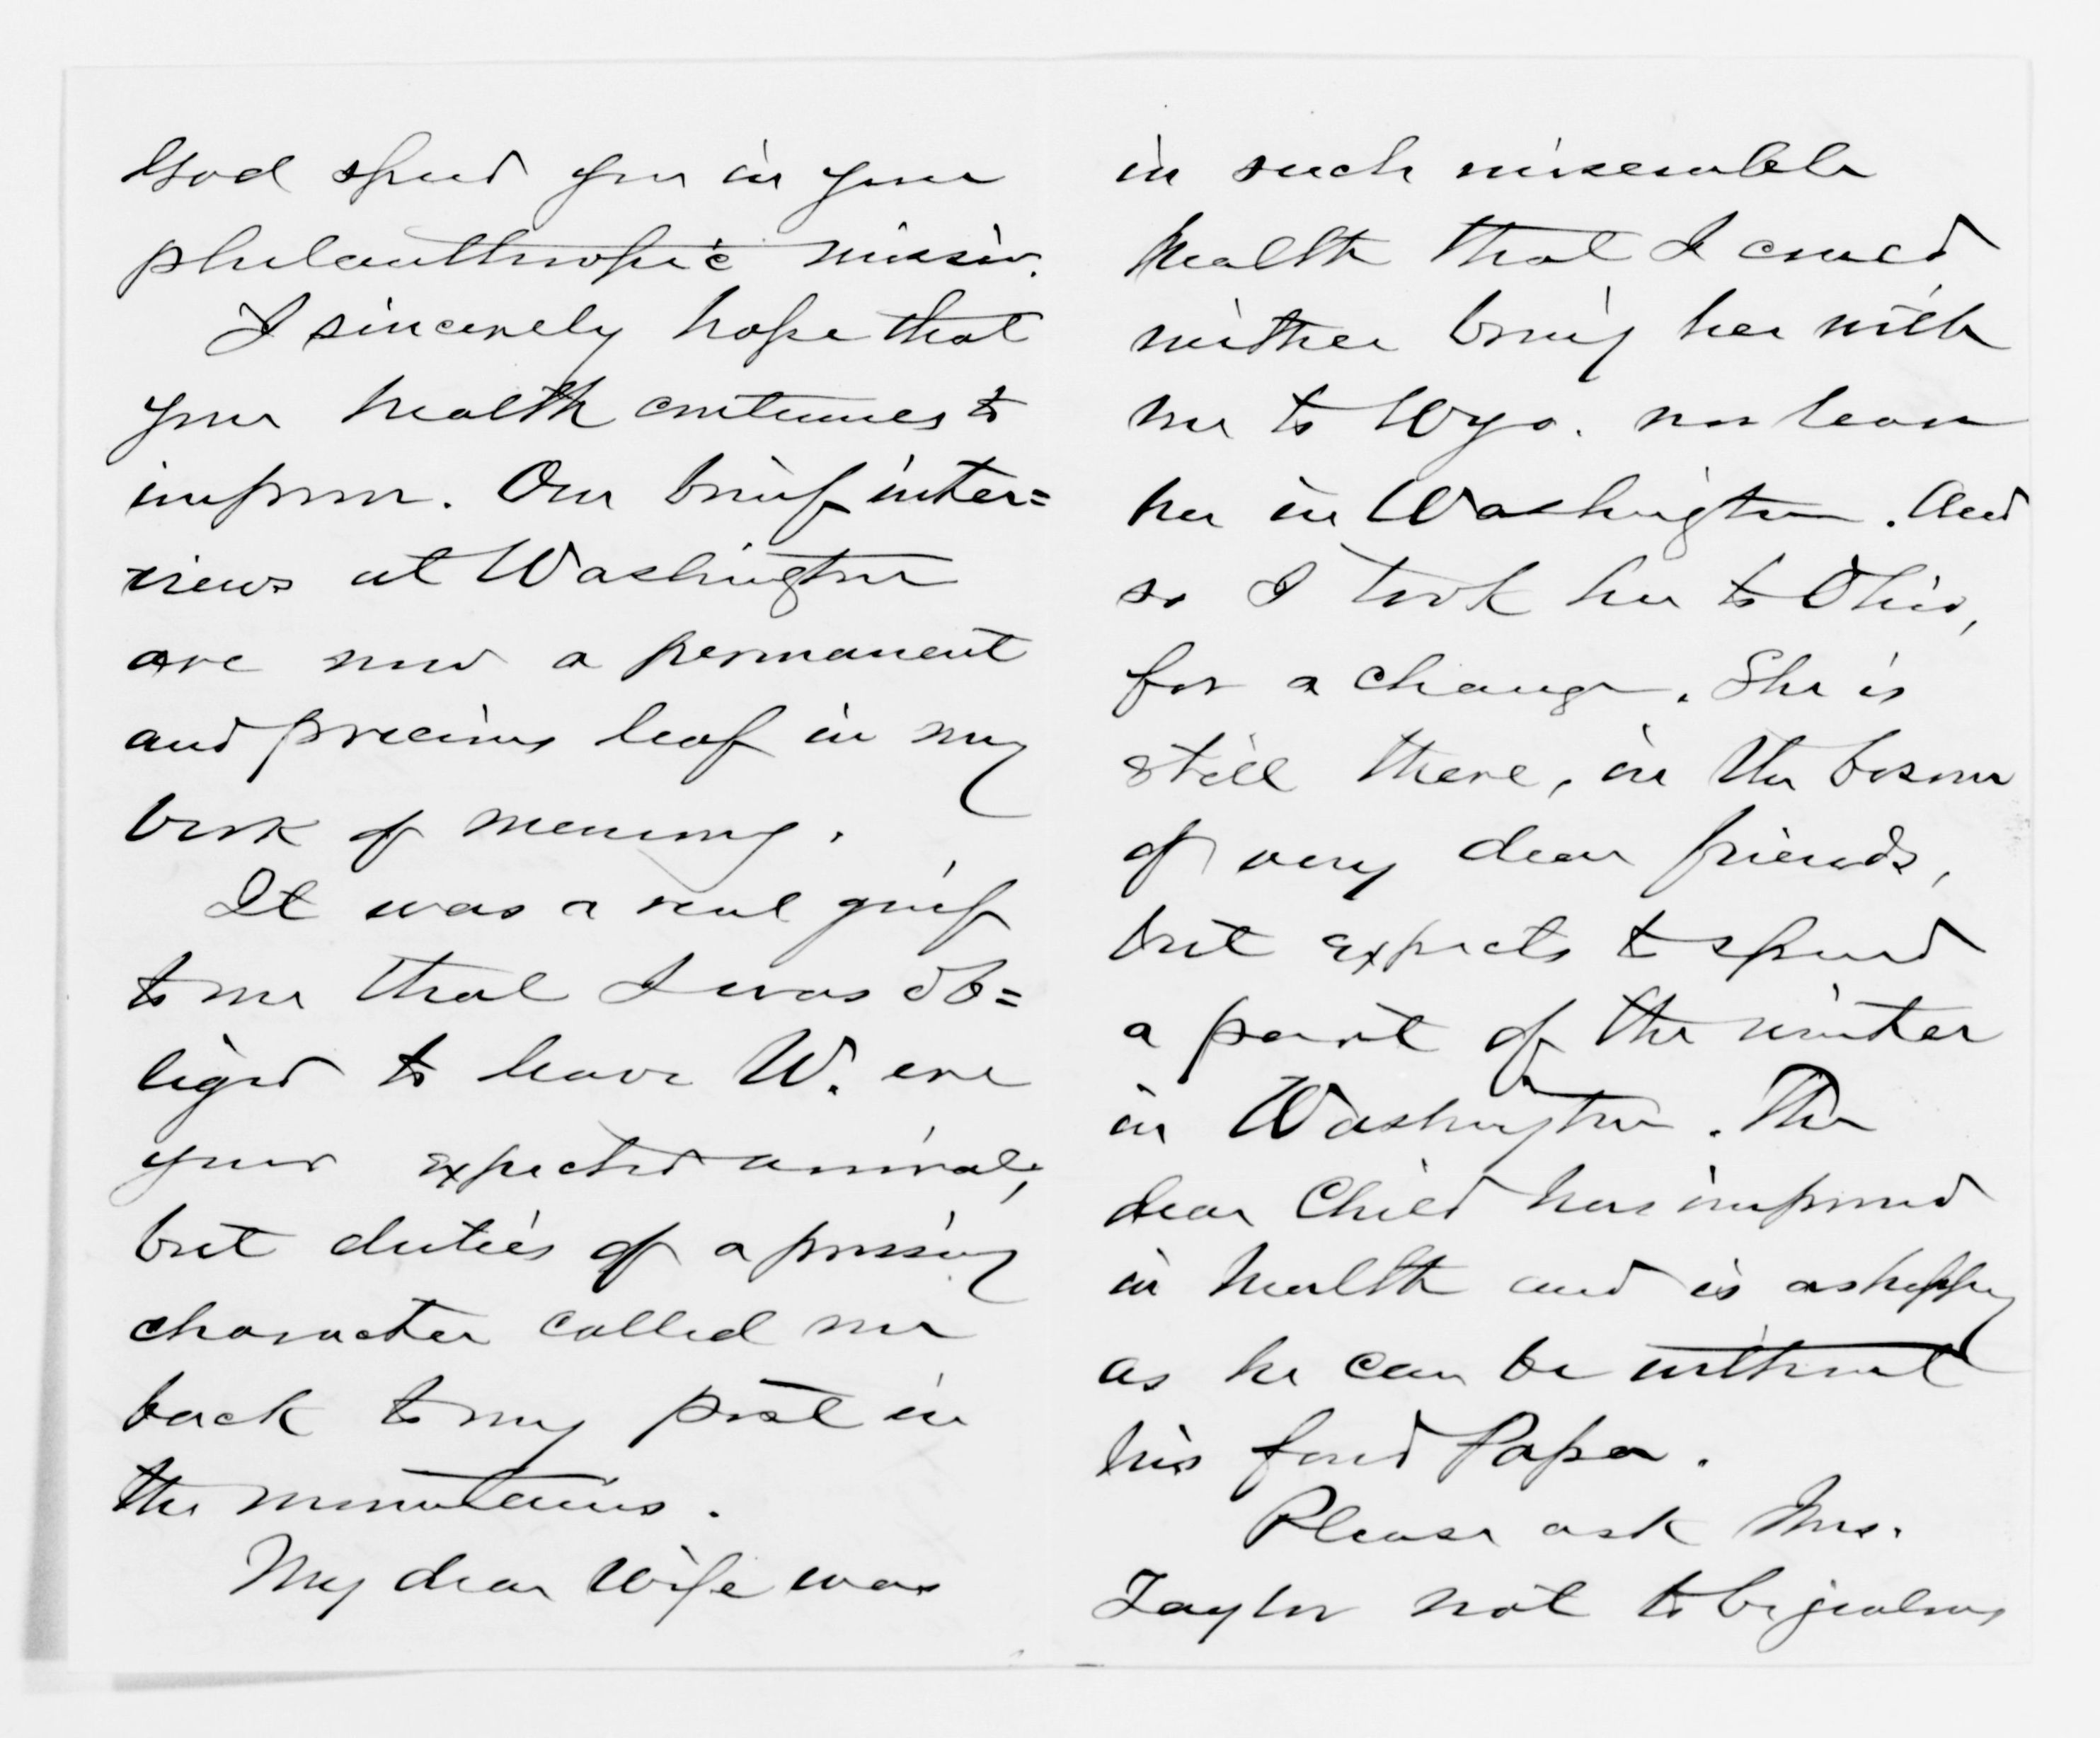 God speed you in your
philanthropic mission.
I sincerely hope that
your health continues to
improve. Our brief inter=
views at Washington
are now a permanent
and precious leaf in my
book of memory.
It was a real grief
to me that I was ob=
liged to leave W. ere
your expected arrival;
but duties of a pressing
character called me
back to my post in
the mountains.
My dear wife was
in such miserable
health that I could
neither bring her with
me to Wyo. nor leave
her in Washington. And
so I took her to Ohio,
for a change. She is
still there, in the bosom
of very dear friends,
but expects to spend
a part of the winter
in Washington. The
dear Child has improved
in health and is as happy
as he can be without
his fond Papa.
Please ask Mrs.
Taylor not to be jealous